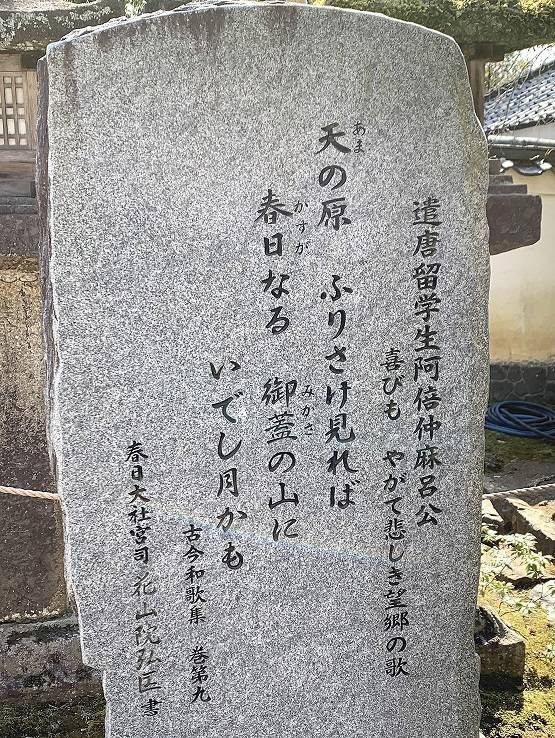 遣唐留学生阿倍仲麻呂公
喜びも やがて悲しき望郷の歌
天の原 ふりさけ見れば
あま
春日なる 御蓋の山に
かすが みかさ
いでし月かも
古今和歌集 巻第九
春日大社宮司 花山院弘匡 書